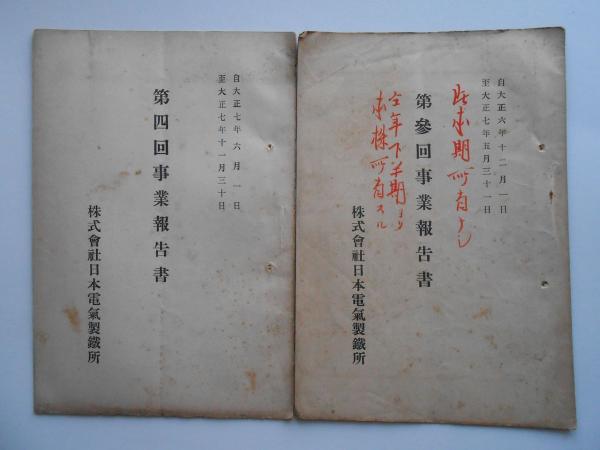 自大正六年十二月一日
至大正七年五月三十一日
第參回事業報告書
株式會社日本電氣製鐵所
此求期所有ナシ
仝年下半期ヨリ
求株所有スル
自大正七年六月一日
至大正七年十一月三十日
第四回事業報告書
株式會社日本電氣製鐵所